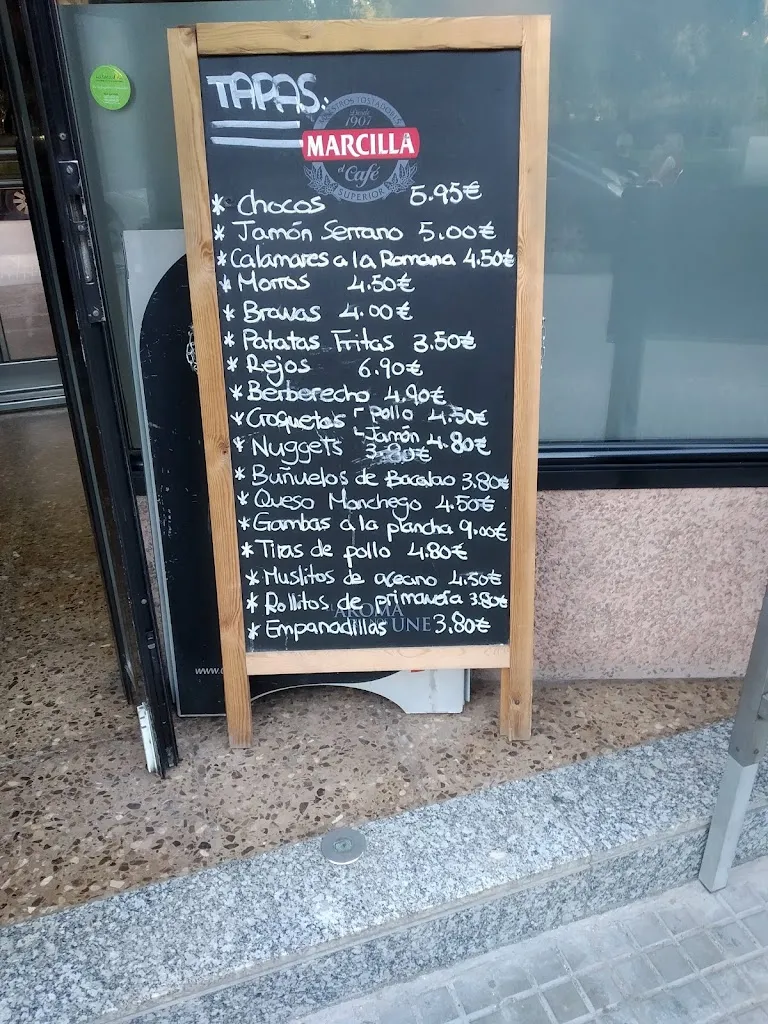 TAPAS:
Desde
1907
MARCILLA
el Café
SUPERIOR
* Chocos 5.95€
* Jamón Serrano 5.00€
* Calamares a la Romana 4.50€
* Morros 4.50€
* Bravas 4.00€
* Patatas Fritas 3.50€
* Rejos 6.90€
* Berberecho 4.90€
* Croquetas Pollo 4.50€
Jamón 4.80€
* Nuggets 3.80€
* Buñuelos de Bacalao 3.80€
* Queso Manchego 4.50€
* Gambas a la plancha 9.00€
* Tiras de pollo 4.80€
* Muslitos de oceano 4.50€
* Rollitos de primavera 3.80€
AROMA
* Empanadillas 3.80€
UNE
www.